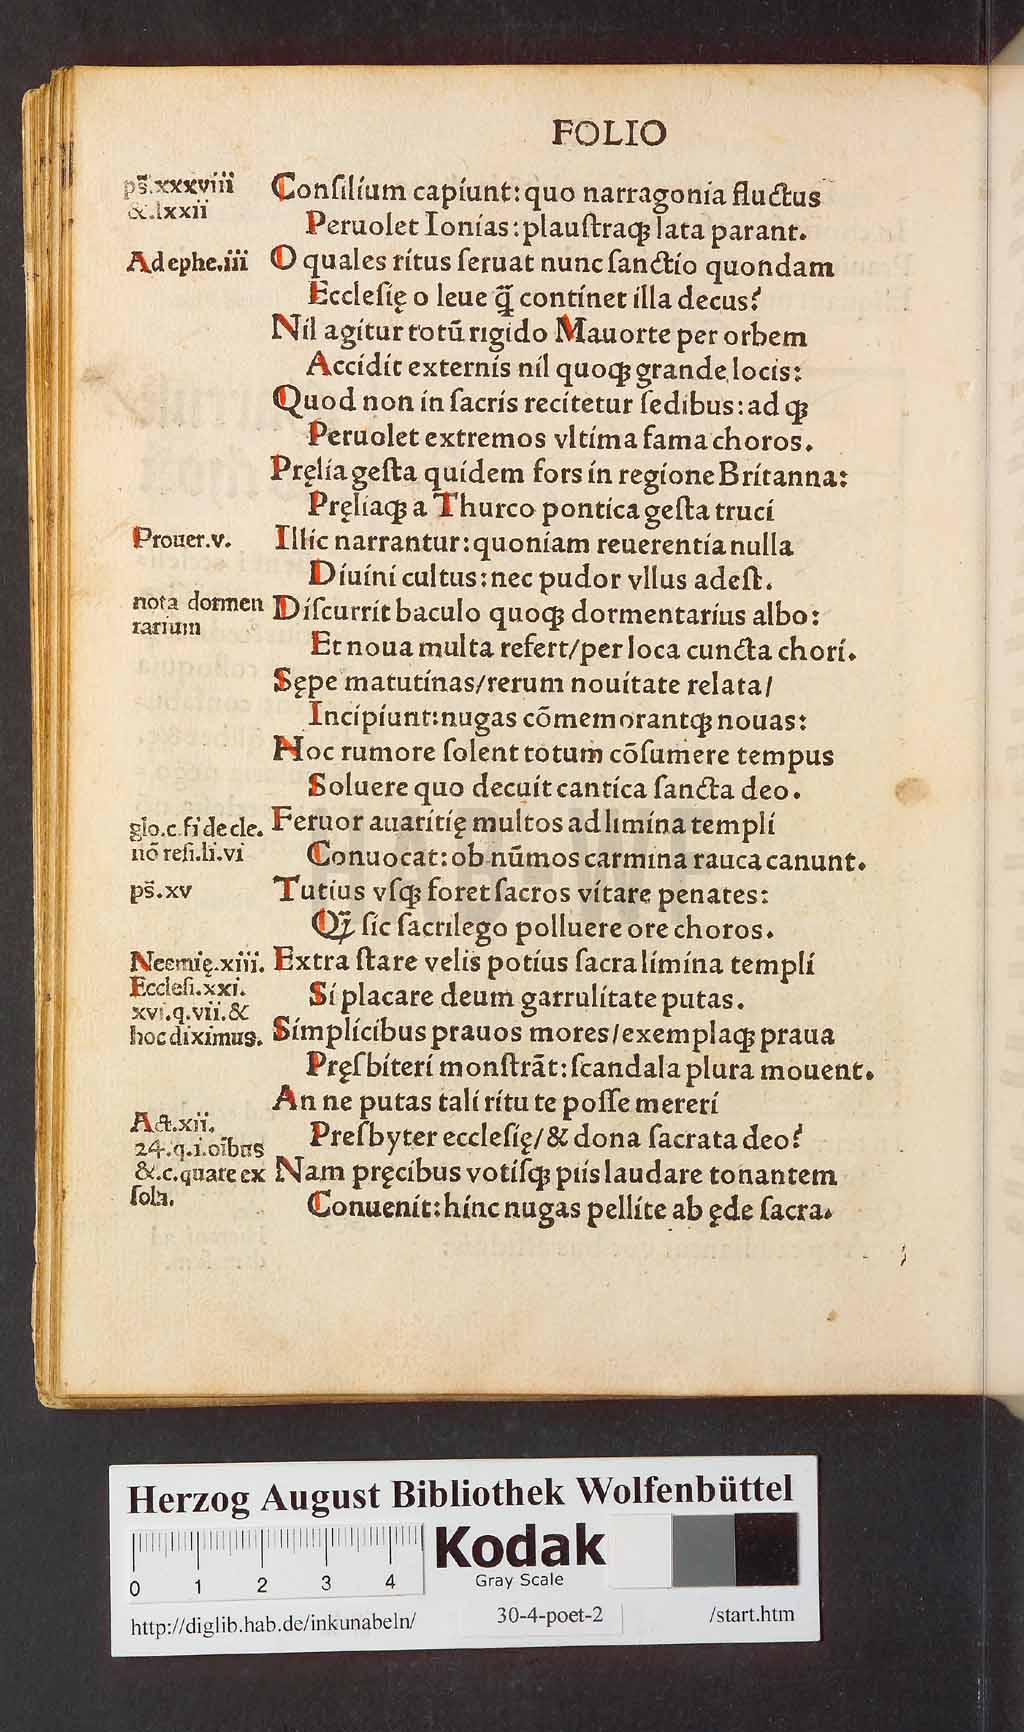 FOLIO
ps̄.xxxviii
&.lxxii
Conſilium capiunt: quo narragonia fluctus
Peruolet Ionias: plauſtraqꝫ lata parant.
Ad ephe.iii
O quales ritus ſeruat nunc ſanctio quondam
Eccleſię o leue q̄̃ continet illa decus?
Nil agitur totū rigido Mauorte per orbem
Accidit externis nil quoqꝫ grande locis:
Quod non in ſacris recitetur ſedibus: ad qꝫ
Peruolet extremos vltima fama choros.
Pręlia geſta quidem fors in regione Britanna:
Pręliaqꝫ a Thurco pontica geſta truci
Prouer.v.
Illic narrantur: quoniam reuerentia nulla
Diuini cultus: nec pudor vllus adeſt.
nota dormen
rarium
Diſcurrit baculo quoqꝫ dormentarius albo:
Et noua multa refert/per loca cuncta chori.
Sępe matutinas/rerum nouitate relata/
Incipiunt: nugas cōmemorantqꝫ nouas:
Hoc rumore ſolent totum cōſumere tempus
Soluere quo decuit cantica ſancta deo.
glo.c.fi de cle.
nō reſi.li.vi
Feruor auaritię multos ad limina templi
Conuocat: ob nūmos carmina rauca canunt.
ps̄.xv
Tutius vſqꝫ foret ſacros vitare penates:
Qꝫ̄ ſic ſacrilego polluere ore choros.
Neemię.xiii.
Eccleſi.xxi.
xvi.q.vii.&
hoc diximus.
Extra ſtare velis potius ſacra limina templi
Si placare deum garrulitate putas.
Simplicibus prauos mores/exemplaqꝫ praua
Pręſbiteri monſtrāt: ſcandala plura mouent.
An ne putas tali ritu te poſſe mereri
Act.xii.
24.q.i.oībus
&.c.quare ex
ſola.
Preſbyter eccleſię/& dona ſacrata deo?
Nam pręcibus votiſqꝫ piis laudare tonantem
Conuenit: hinc nugas pellite ab ęde ſacra.
HAB WF
Herzog August Bibliothek Wolfenbüttel
0 1 2 3 4
Kodak
Gray Scale
http://diglib.hab.de/inkunabeln/ 30-4-poet-2 /start.htm